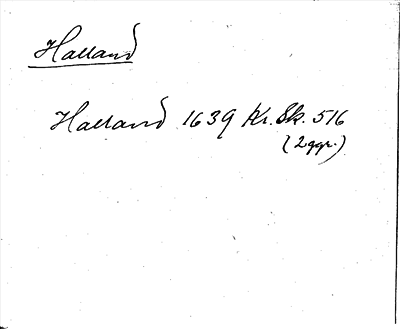 Halland
Halland 1639 Kr. Sk. 516
(2 ggr.)